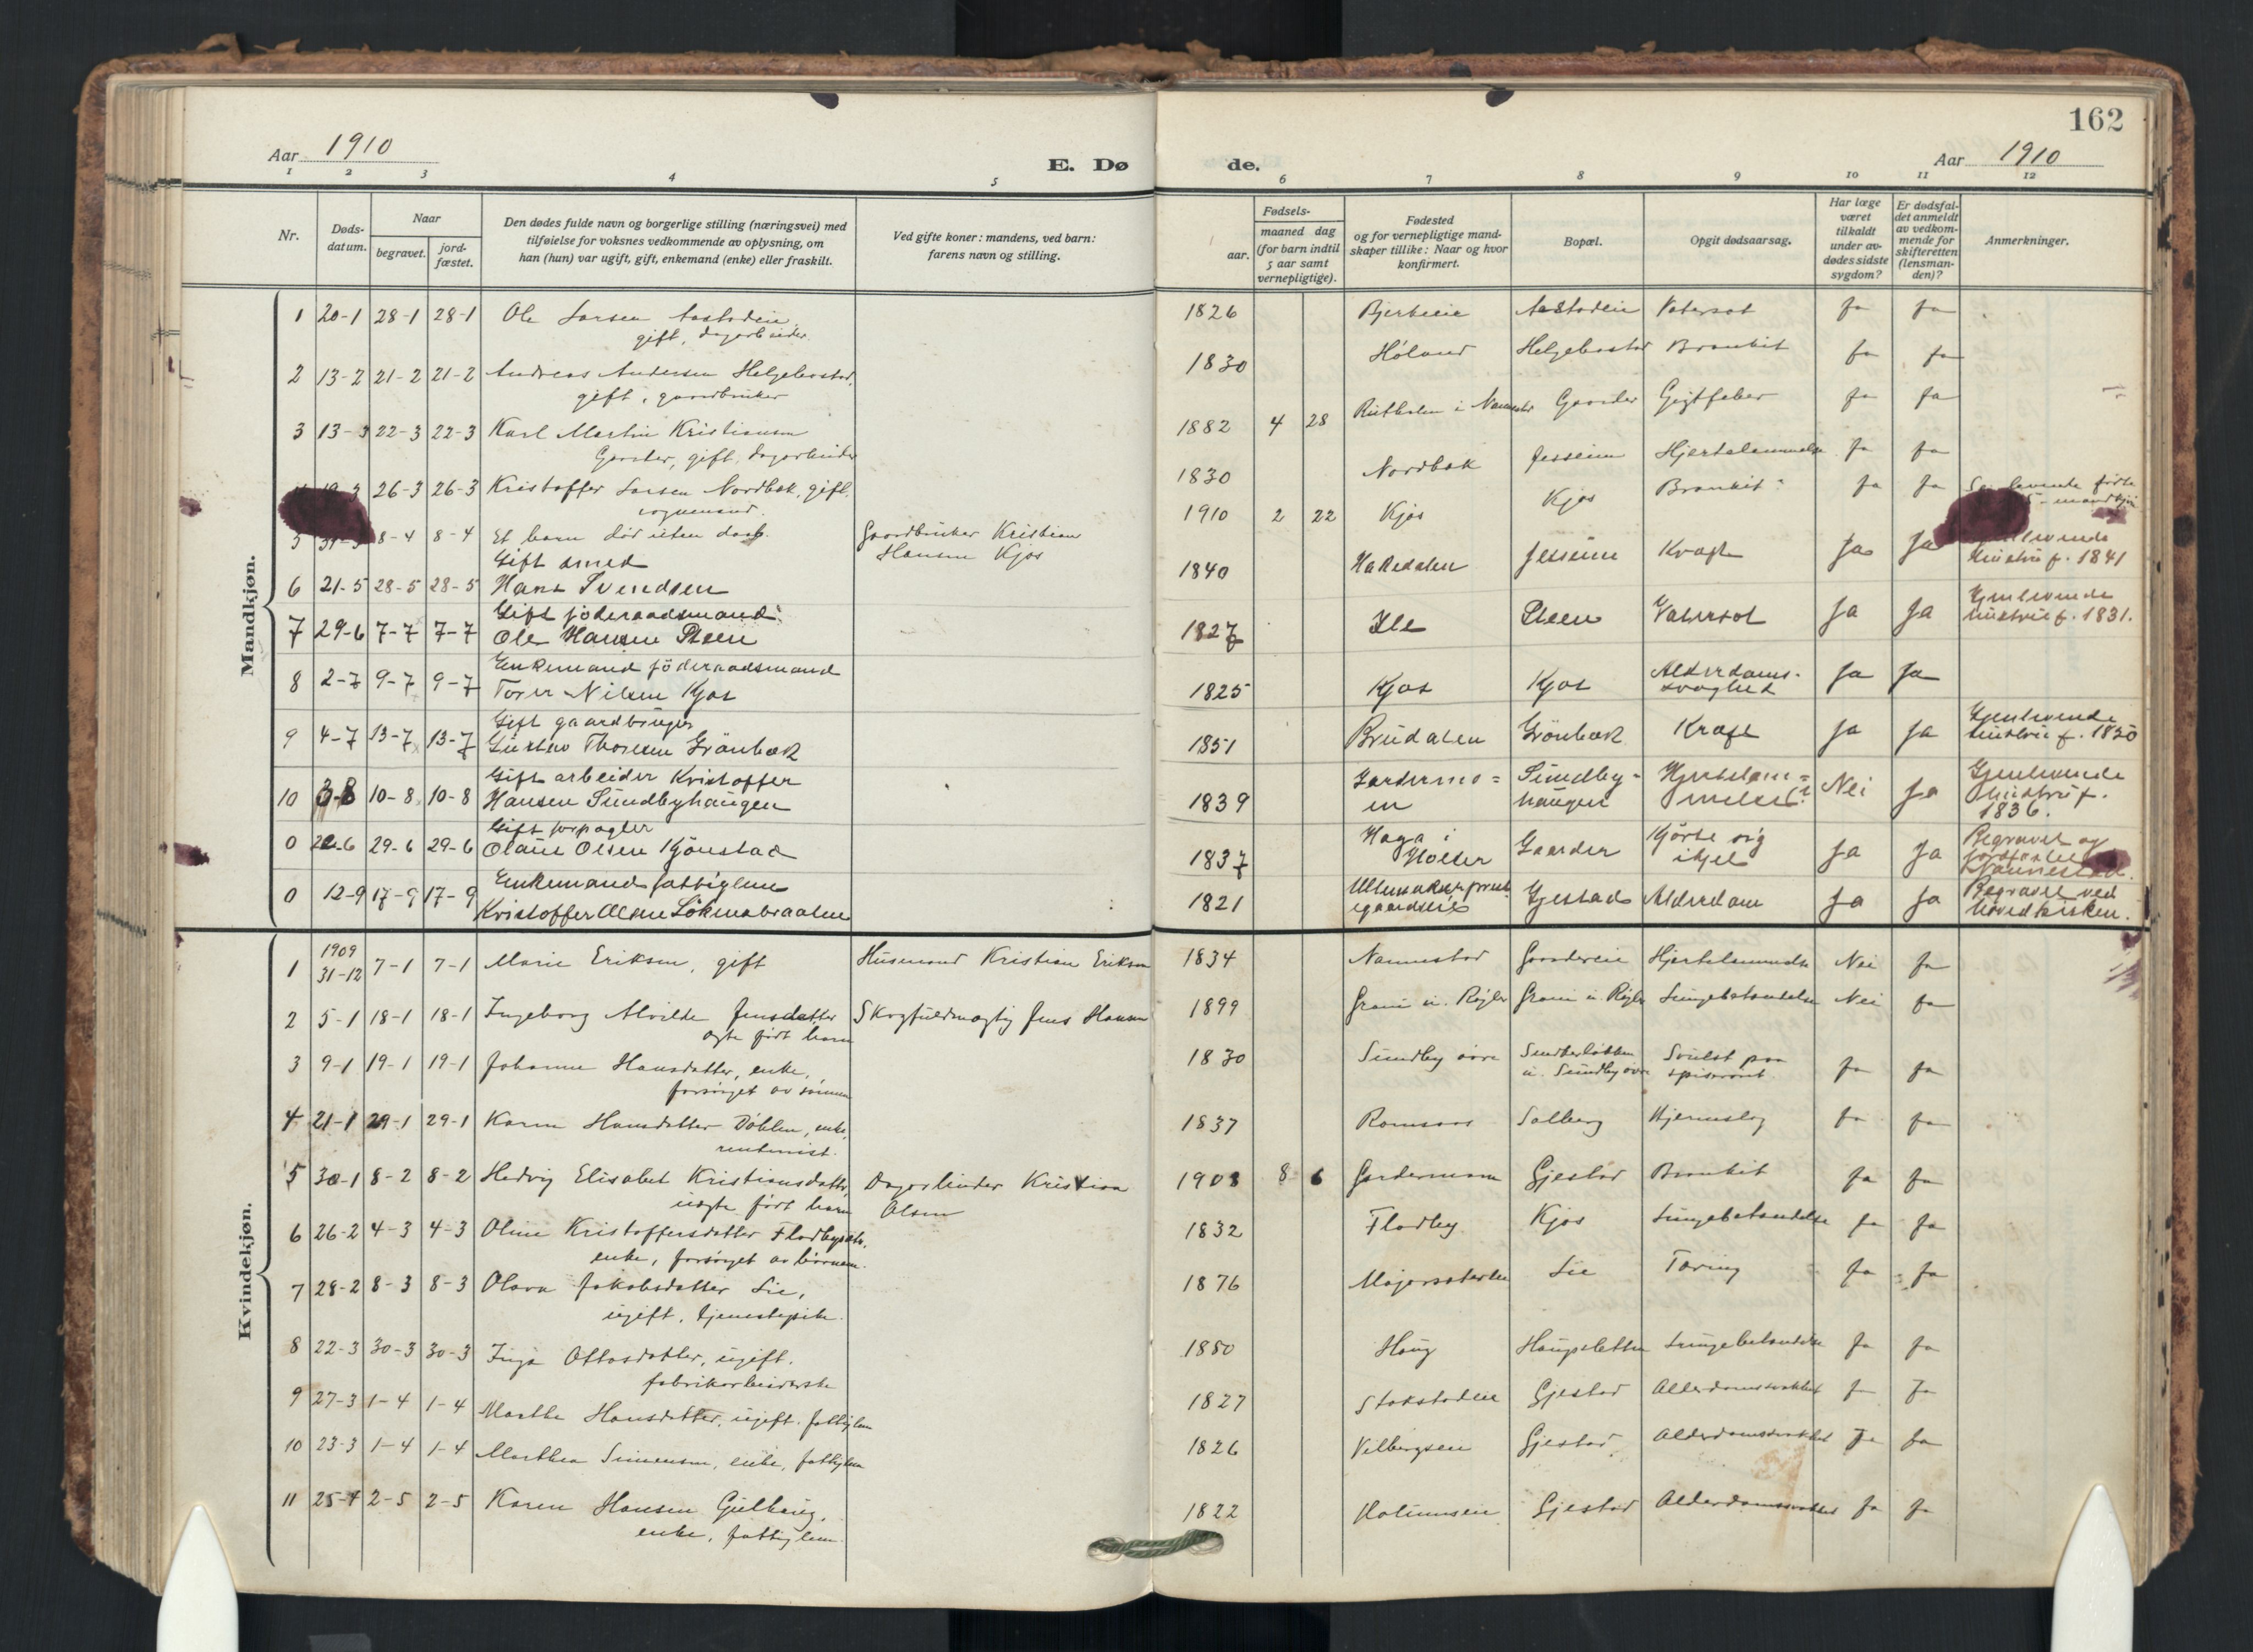 162
Aar 1910
E. Dø
de.
Aar 1910
1 2 3 4 5 6 7 8 9 10 11 12
Nr.
Døds-
datum.
Naar
begravet.
jord-
fæstet.
Den dødes fulde navn og borgerlige stilling (næringsvei) med
tilføielse for voksnes vedkommende av oplysning, om
han (hun) var ugift, gift, enkemand (enke) eller fraskilt.
Ved gifte koner: mandens, ved barn:
farens navn og stilling.
Fødsels-
aar.
maaned dag
(for barn indtil
5 aar samt
vernepligtige).
Fødested
og for vernepligtige mand-
skaper tillike: Naar og hvor
konfirmert.
Bopæl.
Opgit dødsaarsag.
Har læge
været
tilkaldt
under av-
dødes sidste
sygdom?
Er dødsfal-
det anmeldt
av vedkom-
mende for
skifteretten
(lensman-
den)?
Anmerkninger.
Mandkjøn.
1 20-1 28-1 28-1 Ole Larsen 1826 Ja Ja
gift, dagarbeider
2 13-2 21-2 21-2 Andreas Andersen Helgebostad, 1830 Høland Helgebostad Bronkit Ja Ja
gift, gaardbruker
3 13-3 22-3 22-3 Karl Martin Kristiansen 1882 4 28 Gaarder Gigtfeber Ja Ja
Gaarder, gift, dagarbeider
26-3 26-3 Kristoffer Larsen Nordbak, gift, 1830 Nordbak Jesseim Hjertelammelse Ja Ja
5 8-4 8-4 Et barn død uten daab. Gaardbruker Kristian 1910 2 22 Kjos Kjos Bronkit Ja Ja
Hansen Kjos
Gift smed
6 21-5 28-5 28-5 Hans Svendsen 1840 Hakedalen Jesseim Kræft Ja Ja
hustru f. 1841
Gift föderaadsmand
7 29-6 7-7 7-7 Ole Hansen Steen 1827 Ile Steen Vatersot Ja Ja Gjenlevende
hustru f. 1831.
Enkemand föderaadsmand
8 2-7 9-7 9-7 Torer Nilsen Kjos 1825 Kjos Kjos Alderdoms-
svaghed Ja Ja
Gift gaardbruger
9 4-7 13-7 13-7 Gustav Thoresen Grönbæk 1851 Brudalen Grönbæk Kræft Ja Ja Gjenlevende
hustru f. 1850
Gift arbeider Kristoffer
10 3-8 10-8 10-8 Hansen Sundbyhaugen 1839 Gardermo=
en Sundby-
haugen Hjertelam=
melse? Nei Ja Gjenlevende
hustru f.
1836.
Gift forpagter
0 29-6 29-6 Olaus Olsen Kjönstad 1837 Haga i
Holter Gaarder Kjörte sig
ihjel Ja Ja Begravet og
jordfæstet
Nannestad.
Enkemand fattiglem
0 12-9 17-9 17-9 Kristoffer Olsen Lökenabraaten 1821 Gjestad Alderdom Ja Ja Begravet ved
hovedkirken.
Kvindekjøn.
1 1909
31-12 7-1 7-1 Marie Eriksen, gift Husmand Kristian Eriksen 1834 Nannestad Gaardereie Hjertelammelse Nei Ja
2 5-1 18-1 18-1 Ingeborg Alvilde Jensdatter Skogfuldmægtig Jens Hansen 1899 Lungebetændelse Nei Ja
ægte født barn
3 9-1 19-1 19-1 Johanne Hansdatter, enke, 1830 Sundby øvre
u. Sundby øvre Svulst paa
spiserøret Ja Ja
forsørget av sønnen
4 21-1 29-1 29-1 Karen Hansdatter Døhlen, enke, 1837 Romsaas Solberg Hjerneslag Ja Ja
rentenist.
5 30-1 8-2 8-2 Hedvig Elisabet Kristiansdatter, Dagarbeider Kristian 1908 8 6 Gardermoen Gjestad Bronkit Ja Ja
uægte født barn Olsen
6 26-2 4-3 4-3 Oline Kristoffersdatter 1832 Flodby Kjos Lungebetændelse Ja Ja
enke, forsørget av børnene.
7 28-2 8-3 8-3 Olava Jakobsdatter Lie, 1876 Lie Tæring Ja Ja
ugift, tjenestepike.
8 22-3 30-3 30-3 Inga Ottosdatter, ugift. 1850 Haug Haugsletten Lungebetændelse Ja Ja
fabrikarbeiderske
9 27-3 1-4 1-4 Marthe Hansdatter, ugift. fattiglem 1827 Gjestad Alderdomssvakhet Ja Ja
10 23-3 1-4 1-4 Marthea Simensen, enke, fattiglem 1826 Vilbergseie Gjestad Alderdomssvakhet Ja Ja
11 25-4 2-5 2-5 Karen Hansen Gulhaug, 1822 Gjestad Alderdomssvakhet Ja Ja
enke, fattiglem.